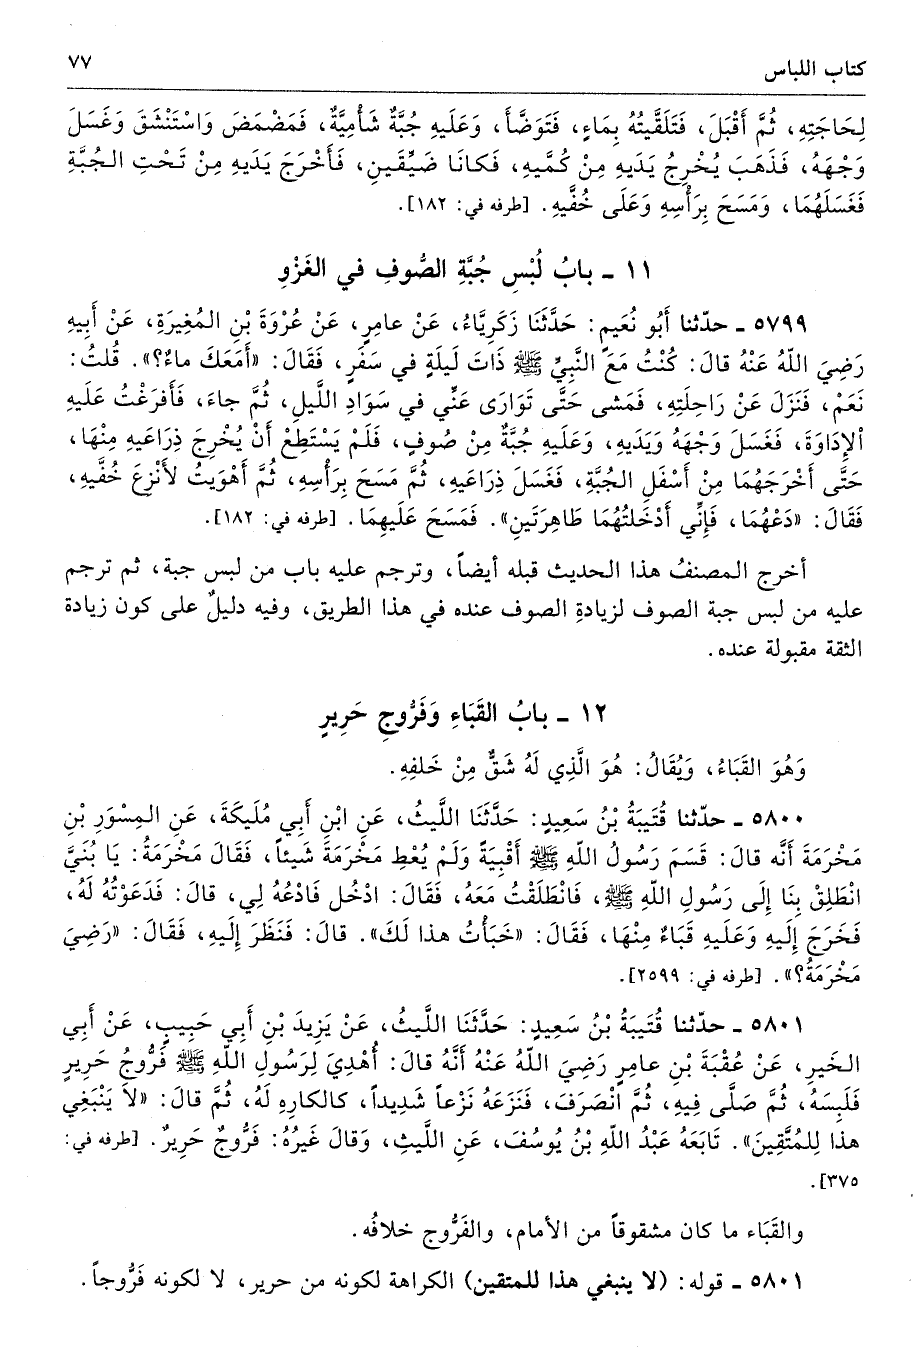 كتاب اللباس ٧٧
لِحَاجَتِهِ، ثُمَّ أَقْبَلَ، فَتَلَقَّيْتُهُ بِمَاءٍ، فَتَوَضَّأَ، وَعَلَيهِ جُبَّةٌ شَأْمِيَّةٌ، فَمَضْمَضَ وَاسْتَنْشَقَ وَغَسَلَ
وَجْهَهُ، فَذَهَبَ يُخْرِجُ يَدَيهِ مِنْ كُمَّيهِ، فَكانَا ضَيِّقَينِ، فَأَخْرَجَ يَدَيهِ مِنْ تَحْتِ الجُبَّةِ
فَغَسَلَهُمَا، وَمَسَحَ بِرَأْسِهِ وَعَلَى خُفَّيهِ. [طرفه في: ١٨٢].
١١ - بابُ لُبْسِ جُبَّةِ الصُّوفِ في الغَزْوِ
٥٧٩٩ - حدّثنا أَبُو نُعَيمٍ: حَدَّثَنَا زَكَرِيَّاءُ، عَنْ عامِرٍ، عَنْ عُرْوَةَ بْنِ المُغِيرَةِ، عَنْ أَبِيهِ
رَضِيَ اللّهُ عَنْهُ قالَ: كُنْتُ مَعَ النَّبِيِّ ﷺ ذَاتَ لَيلَةٍ في سَفَرٍ، فَقَالَ: «أَمَعَكَ ماءٌ؟». قُلتُ:
نَعَمْ، فَنَزَلَ عَنْ رَاحِلَتِهِ، فَمَشى حَتَّى تَوَارَى عَنِّي في سَوَادِ اللَّيلِ، ثُمَّ جاءَ، فَأَفرَغْتُ عَلَيهِ
الإِدَاوَةَ، فَغَسَلَ وَجْهَهُ وَيَدَيهِ، وَعَلَيهِ جُبَّةٌ مِنْ صُوفٍ، فَلَمْ يَسْتَطِعْ أَنْ يُخْرِجَ ذِرَاعَيهِ مِنْهَا،
حَتَّى أَخْرَجَهُمَا مِنْ أَسْفَلِ الجُبَّةِ، فَغَسَلَ ذِرَاعَيهِ، ثُمَّ مَسَحَ بِرَأْسِهِ، ثُمَّ أَهْوَيتُ لأَنْزِعَ خُفَّيهِ،
فَقَالَ: «دَعْهُمَا، فَإِنِّي أَدْخَلتُهُمَا طَاهِرَتَينِ». فَمَسَحَ عَلَيهِمَا. [طرفه في: ١٨٢].
أخرج المصنفُ هذا الحديث قبله أيضاً، وترجم عليه باب من لبس جبة، ثم ترجم
عليه من لبس جبة الصوف لزيادةِ الصوف عنده في هذا الطريق، وفيه دليلٌ على كون زيادة
الثقة مقبولة عنده.
١٢ - بابُ القَبَاءِ وَفَرُّوجِ حَرِيرٍ
وَهُوَ القَبَاءُ، وَيُقَالُ: هُوَ الَّذِي لَهُ شَقٌّ مِنْ خَلفِهِ.
٥٨٠٠ - حدّثنا قُتَيبَةُ بْنُ سَعِيدٍ: حَدَّثَنَا اللَّيثُ، عَنِ ابْنِ أَبِي مُلَيكَةَ، عَنِ المِسْوَرِ بْنِ
مَخْرَمَةَ أَنَّه قالَ: قَسَمَ رَسُولُ اللّهِ ﷺ أَقْبِيَةً وَلَمْ يُعْطِ مَخْرَمَةَ شَيئاً، فَقَالَ مَخْرَمَةُ: يَا بُنَيَّ
انْطَلِقْ بِنَا إِلَى رَسُولِ اللّهِ ﷺ، فَانْطَلَقْتُ مَعَهُ، فَقَالَ: ادْخُل فَادْعُهُ لِي، قالَ: فَدَعَوْتُهُ لَهُ،
فَخَرَجَ إِلَيهِ وَعَلَيهِ قَبَاءٌ مِنْهَا، فَقَالَ: «خَبَأْتُ هذا لَكَ». قالَ: فَنَظَرَ إِلَيهِ، فَقَالَ: «رَضِيَ
مَخْرَمَةُ؟». [طرفه في: ٢٥٩٩].
٥٨٠١ - حدّثنا قُتَيبَةُ بْنُ سَعِيدٍ: حَدَّثَنَا اللَّيثُ، عَنْ يَزِيدَ بْنِ أَبِي حَبِيبٍ، عَنْ أَبِي
الخَيرِ، عَنْ عُقْبَةَ بْنِ عامِرٍ رَضِيَ اللّهُ عَنْهُ أَنَّهُ قالَ: أُهْدِيَ لِرَسُولِ اللّهِ ﷺ فَرُّوجُ حَرِيرٍ
فَلَبِسَهُ، ثُمَّ صَلَّى فِيهِ، ثُمَّ انْصَرَفَ، فَنَزَعَهُ نَزْعاً شَدِيداً، كالكارِهِ لَهُ، ثُمَّ قالَ: «لاَ يَنْبَغِي
هذا لِلمُتَّقِينَ». تَابَعَهُ عَبْدُ اللّهِ بْنُ يُوسُفَ، عَنِ اللَّيثِ، وَقالَ غَيرُهُ: فَرُّوجٌ حَرِيرٌ. [طرفه في:
٣٧٥].
والقَبَاء ما كان مشقوقاً من الأمام، والفَرُّوج خلافُه.
٥٨٠١ - قوله: (لا ينبغي هذا للمتقين) الكراهة لكونه من حرير، لا لكونه فَرُّوجاً.